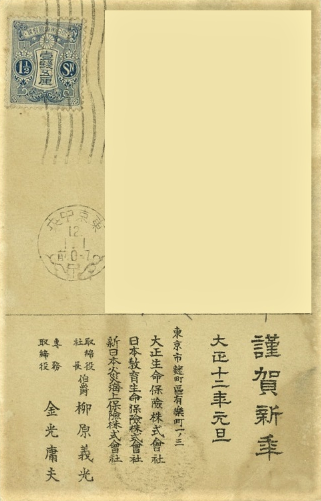 1½ 壹錢五厘 Sn
12.
1.1
謹賀新年
大正十二年元旦
東京市麴町區有樂町一ノ三
大正生命保險株式會社
日本教育生命保險株式會社
新日本火災海上保險株式會社
取締役社長 伯爵 柳原義光
專務取締役 金光庸夫